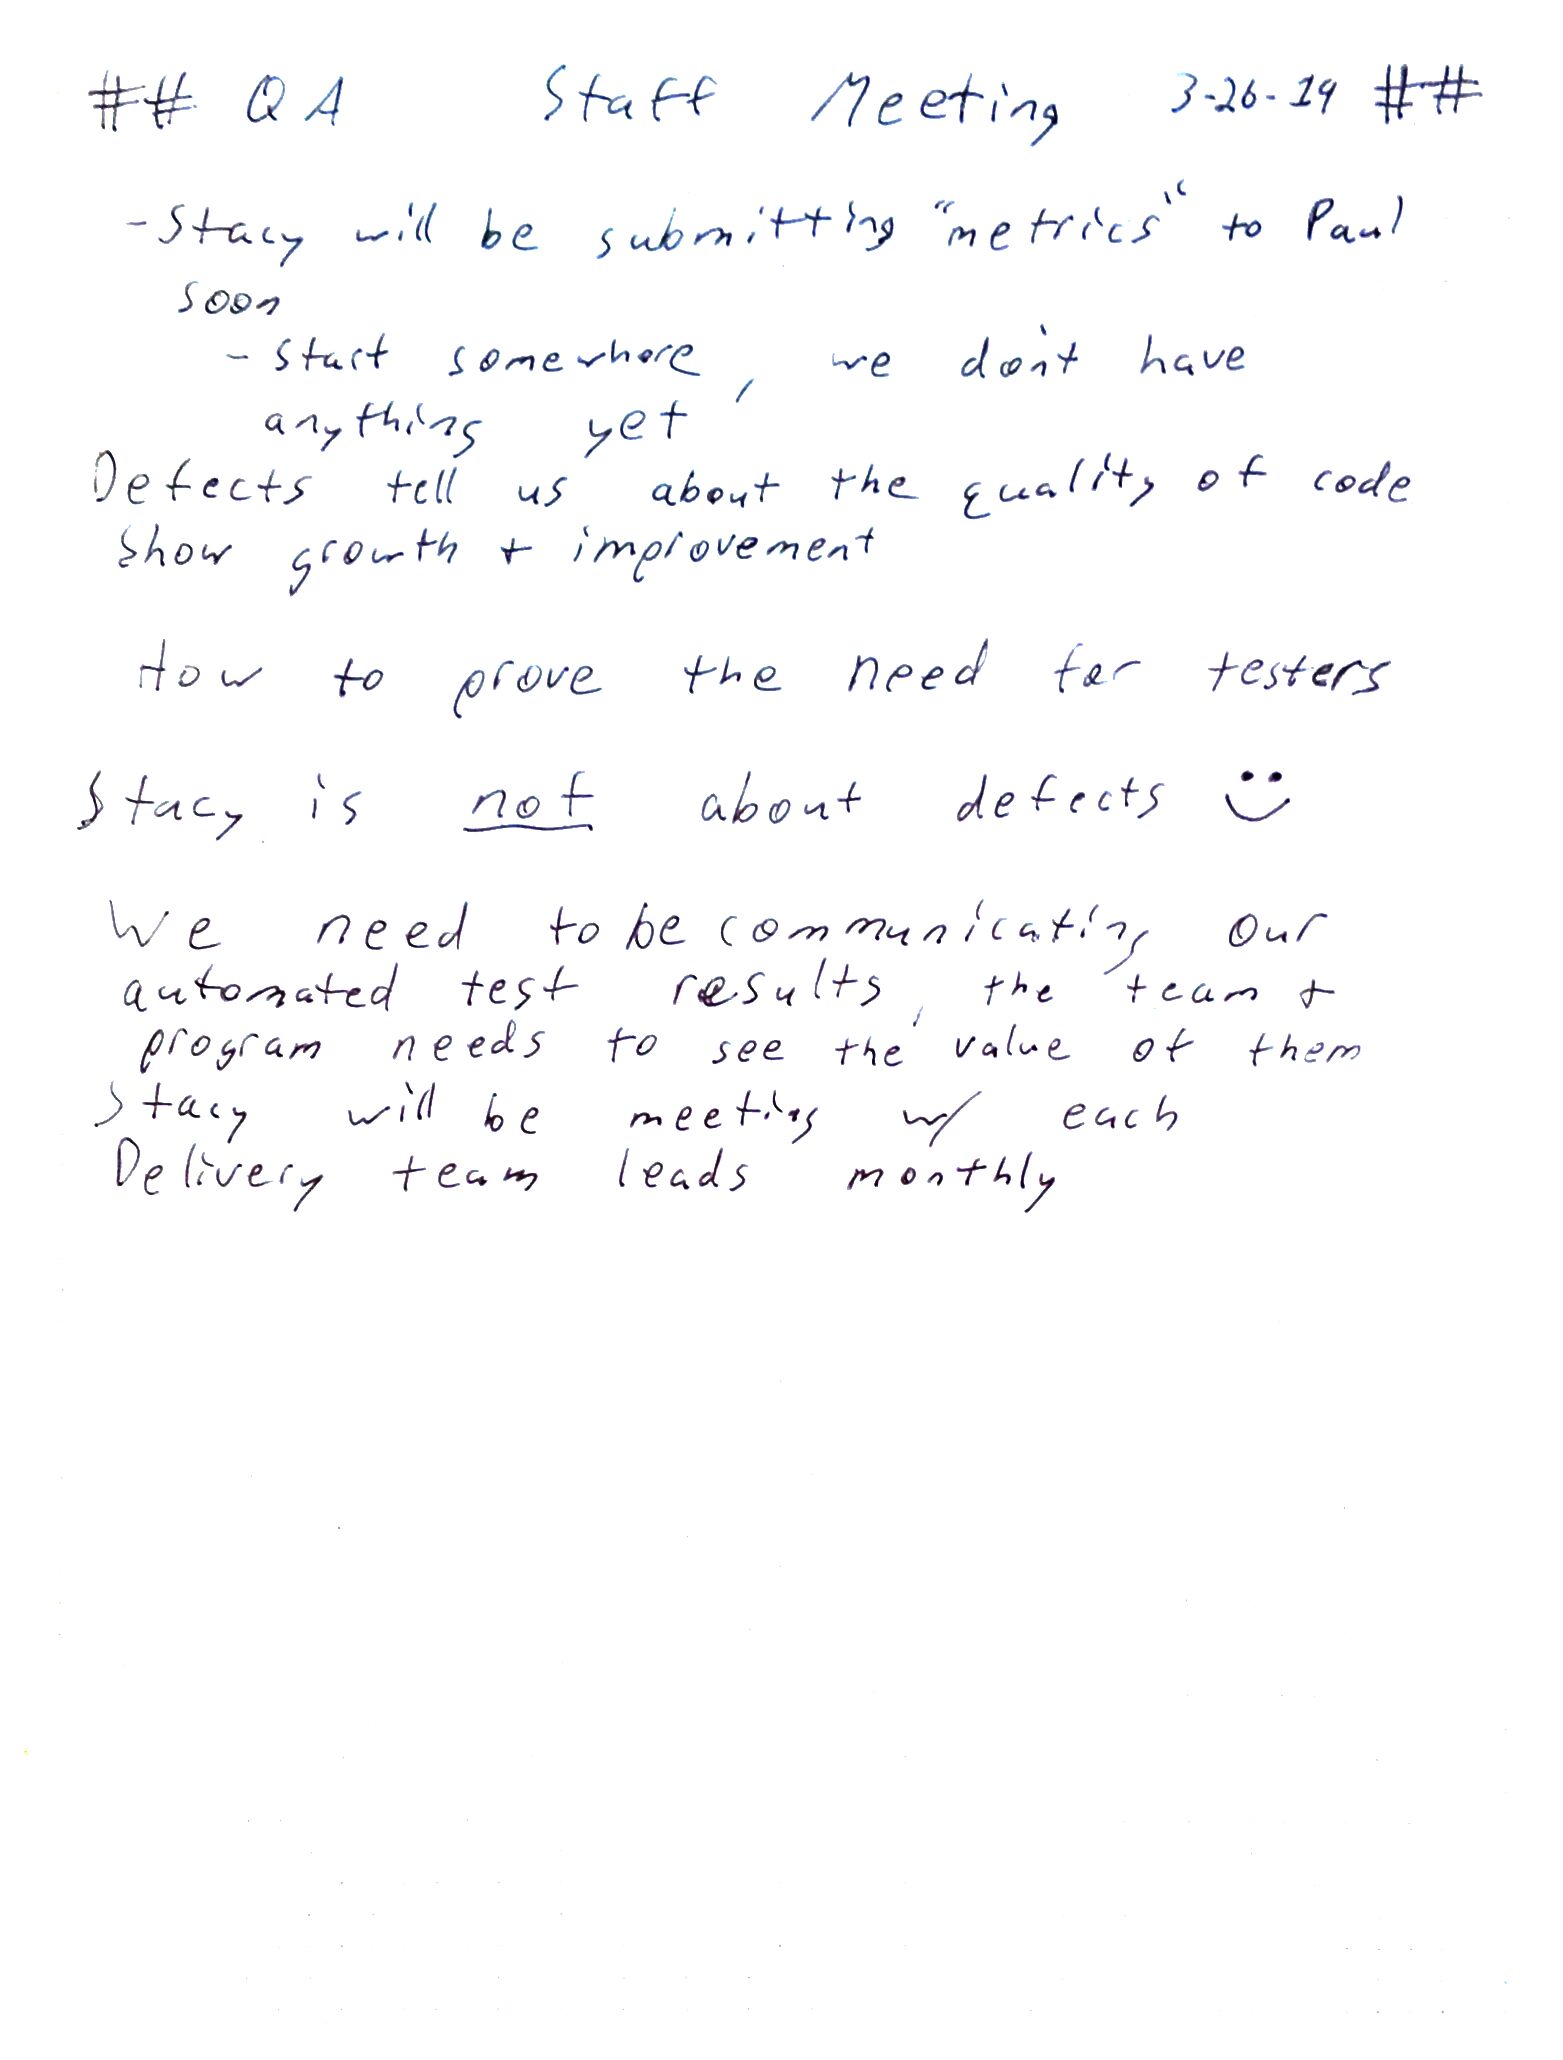 ## QA Staff Meeting 3-26-19 ##
- Stacy will be submitting "metrics" to Paul
soon
- Start somewhere, we don't have
anything yet
Defects tell us about the quality of code
Show growth + improvement
How to prove the need for testers
Stacy is not about defects
We need to be communicating our
automated test results, the team +
program needs to see the value of them
Stacy will be meeting w/ each
Delivery team leads monthly